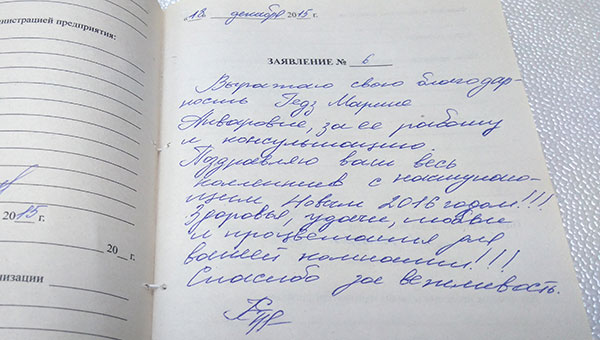 министрацией предприятия:
20 15 г.
20 г.
низации
18 декабря 2015 г.
ЗАЯВЛЕНИЕ № 6
Выражаю свою благодар-
ность Гедз Марине
Анваровне, за ее работу
и консультацию.
Поздравляю ваш весь
коллектив с наступаю-
щим Новым 2016 годом!!!
Здоровья, удачи, любви
и процветания для
вашей компании!!!
Спасибо за вежливость.